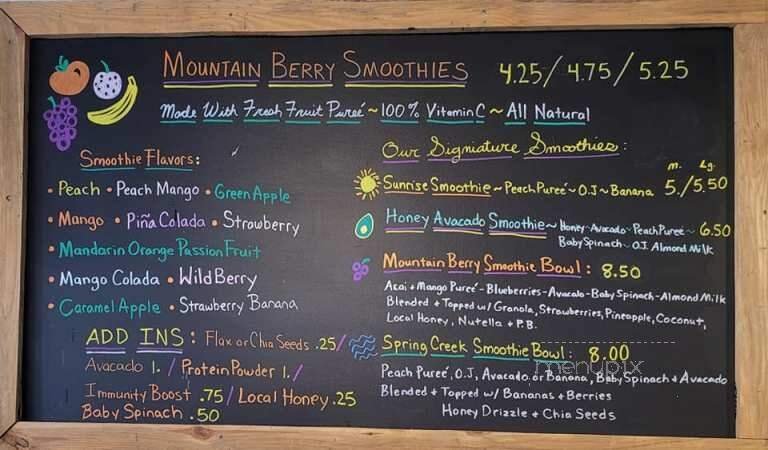 Mountain Berry Smoothies 4.25/4.75/5.25
Made With Fresh Fruit Pureé ~ 100% Vitamin C ~ All Natural
Smoothie Flavors:
• Peach • Peach Mango • Green Apple
• Mango • Piña Colada • Strawberry
• Mandarin Orange Passion Fruit
• Mango Colada • Wild Berry
• Caramel Apple • Strawberry Banana
ADD INS: Flax or Chia Seeds .25/
Avacado 1./ Protein Powder 1./
Immunity Boost .75/ Local Honey .25
Baby Spinach .50
Our Signature Smoothies:
m. Lg.
Sunrise Smoothie ~ Peach Pureé ~ O.J ~ Banana 5./5.50
Honey Avacado Smoothie ~ Honey ~ Avacado ~ Peach Pureé ~ 6.50
Baby Spinach ~ O.J. Almond Milk
Mountain Berry Smoothie Bowl: 8.50
Acai + Mango Pureé - Blueberries - Avacado - Baby Spinach - Almond Milk
Blended + Topped w/ Granola, Strawberries, Pineapple, Coconut,
Local Honey, Nutella + P.B.
Spring Creek Smoothie Bowl: 8.00
Peach Pureé, O.J, Avacado or Banana, Baby Spinach + Avacado
Blended + Topped w/ Bananas + Berries
Honey Drizzle + Chia Seeds
menupix